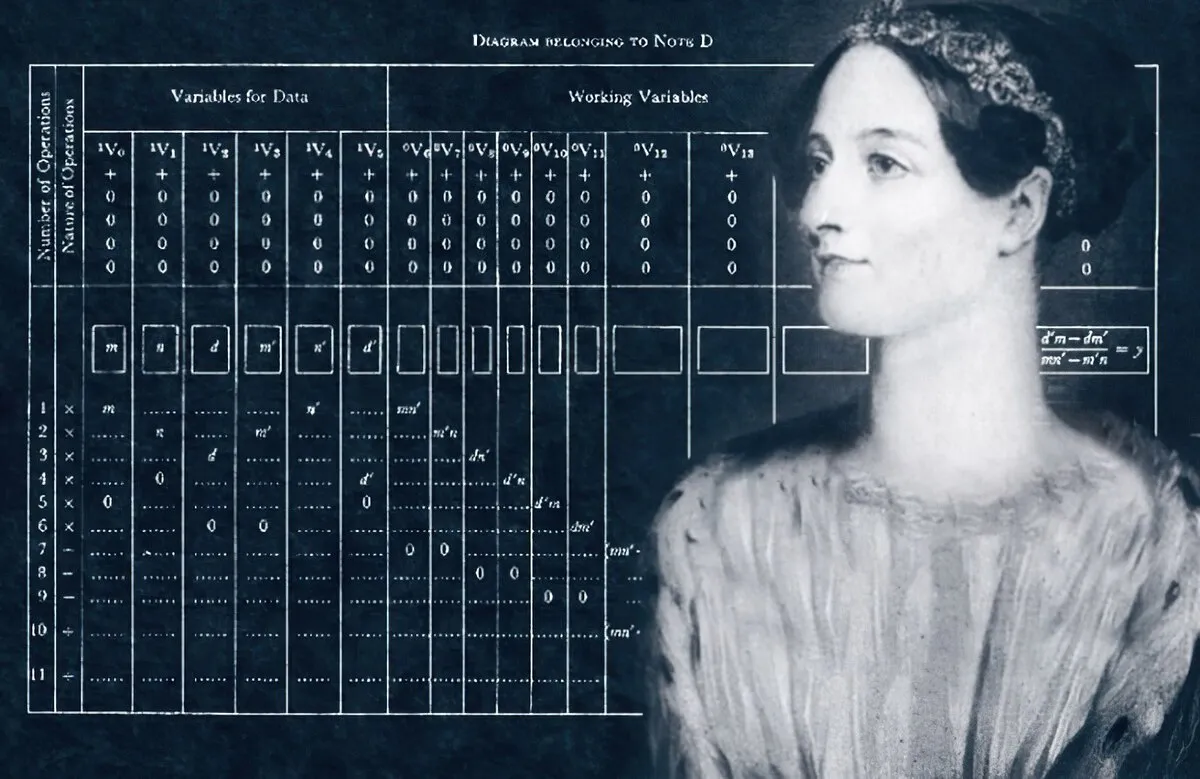 Diagram belonging to Note D
Variables for Data Working Variables
Number of Operations
Nature of Operations
¹V₀ ¹V₁ ¹V₂ ¹V₃ ¹V₄ ¹V₅ ⁰V₆ ⁰V₇ ⁰V₈ ⁰V₉ ⁰V₁₀ ⁰V₁₁ ⁰V₁₂ ⁰V₁₃
+ + + + + + + + + + + + + +
0 0 0 0 0 0 0 0 0 0 0 0 0 0
0 0 0 0 0 0 0 0 0 0 0 0 0 0
0 0 0 0 0 0 0 0 0 0 0 0 0 0 0
0 0 0 0 0 0 0 0 0 0 0 0 0 0 0
m n d m′ n′ d′
d′m − dm′
mn′ − m′n = y
1 × m ..... ..... ..... n′ ..... mn′
2 × ..... n ..... m′ ..... ..... ..... m′n
3 × ..... ..... d ..... ..... ..... ..... ..... dn′
4 × ..... 0 ..... ..... ..... d′ ..... ..... ..... d′n
5 × 0 ..... ..... ..... ..... 0 ..... ..... ..... ..... d′m
6 × ..... ..... 0 0 ..... ..... ..... ..... ..... ..... ..... dm′
7 − ..... ..... ..... ..... ..... ..... 0 0 ..... ..... ..... ..... (mn′-
8 − ..... ..... ..... ..... ..... ..... ..... ..... 0 0 ..... ..... .....
9 − ..... ..... ..... ..... ..... ..... ..... ..... ..... ..... 0 0 .....
10 ÷ ..... ..... ..... ..... ..... ..... ..... ..... ..... ..... ..... ..... (mn′-
11 ÷ ..... ..... ..... ..... ..... ..... ..... ..... ..... ..... ..... .....